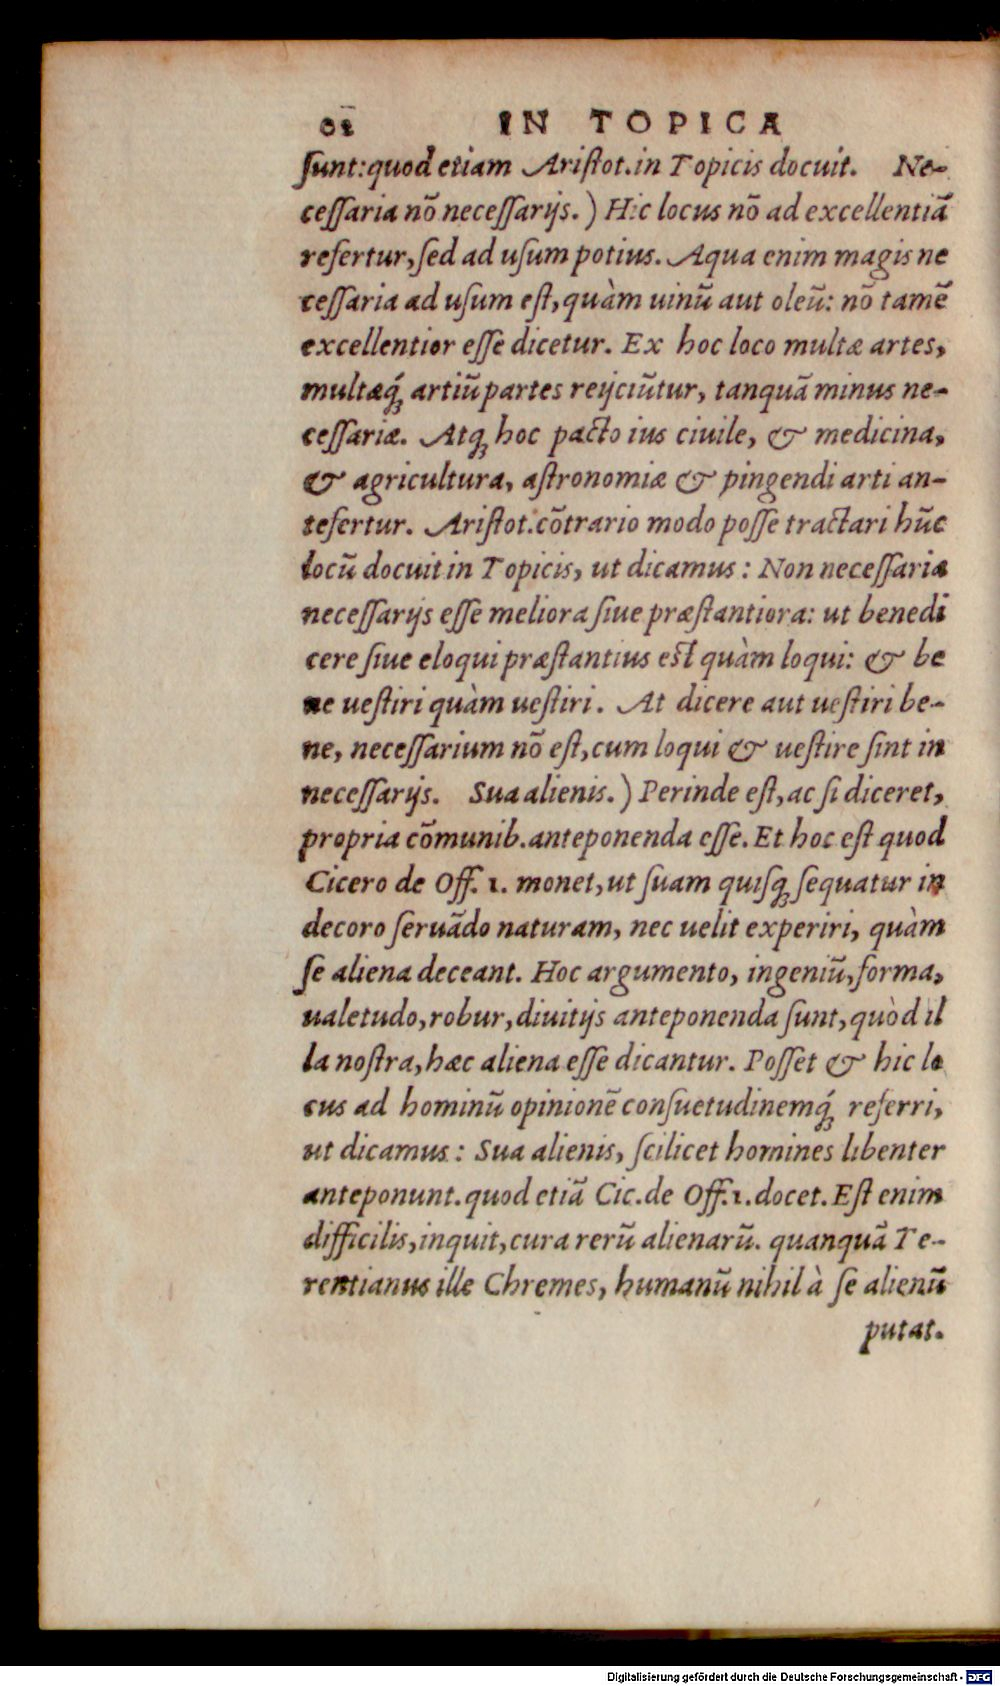 IN TOPICA
ſunt: quod etiam Ariſtot. in Topicis docuit. Ne-
ceſſaria nõ neceſſarijs.) Hic locus nõ ad excellentiã
refertur, ſed ad uſum potius. Aqua enim magis ne
ceſſaria ad uſum eſt, quàm uinũ aut oleũ: nõ tamẽ
excellentior eſſe dicetur. Ex hoc loco multæ artes,
multæq́; artiũ partes reijciũtur, tanquã minus ne-
ceſſariæ. Atq; hoc pacto ius ciuile, & medicina,
& agricultura, aſtronomiæ & pingendi arti an-
tefertur. Ariſtot. cõtrario modo poſſe tractari hũc
locũ docuit in Topicis, ut dicamus: Non neceſſaria
neceſſarijs eſſe meliora ſiue præſtantiora: ut benedi
cere ſiue eloqui præſtantius eſt quàm loqui: & be
ne ueſtiri quàm ueſtiri. At dicere aut ueſtiri be-
ne, neceſſarium nõ eſt, cum loqui & ueſtire ſint in
neceſſarijs. Sua alienis.) Perinde eſt, ac ſi diceret,
propria cõmunib. anteponenda eſſe. Et hoc eſt quod
Cicero de Off. 1. monet, ut ſuam quiſq; ſequatur in
decoro ſeruãdo naturam, nec uelit experiri, quàm
ſe aliena deceant. Hoc argumento, ingeniũ, forma,
ualetudo, robur, diuitijs anteponenda ſunt, quòd il
la noſtra, hæc aliena eſſe dicantur. Poſſet & hic lo
cus ad hominũ opinionẽ conſuetudinemq́; referri,
ut dicamus: Sua alienis, ſcilicet homines libenter
anteponunt. quod etiã Cic. de Off. 1. docet. Eſt enim
difficilis, inquit, cura rerũ alienarũ. quanquã Te-
rentianus ille Chremes, humanũ nihil à ſe alienũ
putat.
Digitalisierung gefördert durch die Deutsche Forschungsgemeinschaft - DFG